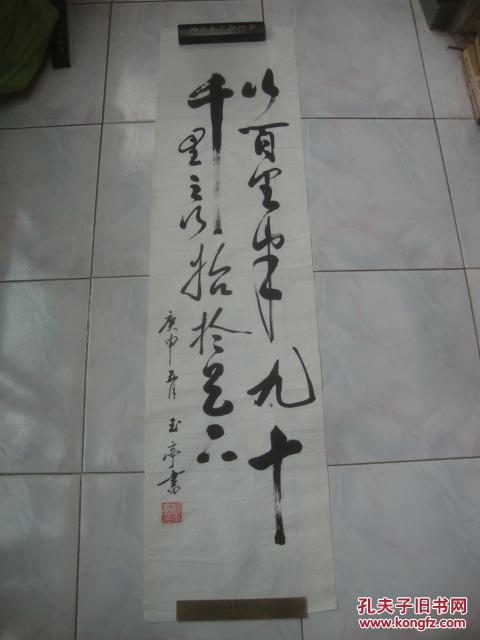 行百里半九十
千里之行始於足下
庚申五月 玉亭書
孔夫子旧书网
www.kongfz.com